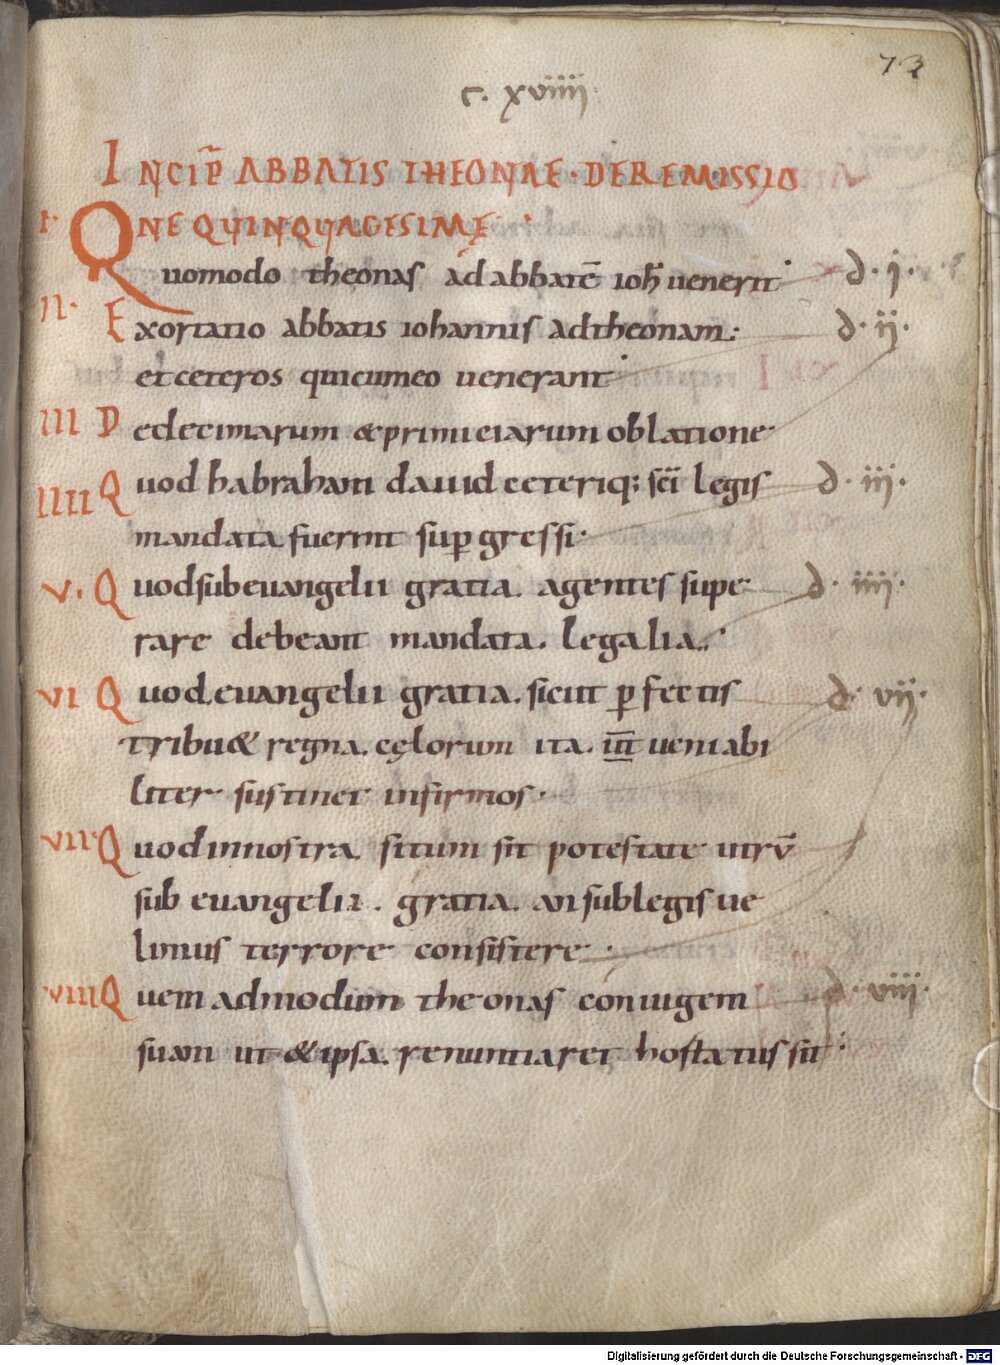 73
c. xviiii.
INCIP̅ ABBATIS THEONAE · DE REMISSIO
NE QUINQUAGESIMĘ ·
I· Quomodo theonas ad abbatē ioh̅ uenerit d · i ·
II· Exortatio abbatis iohannis adtheonam: d · ii ·
et ceteros qui cum eo uenerant
III De decimarum & primiciarum oblatione
IIII Quod habraham dauid ceteriq; sc̅i legis d · iii ·
mandata fuerint sup̱gressi·
V· Quod sub euangelii gratia. agentes supe d · iiii ·
rare debeant mandata. legalia.
VI Quod euangelii gratia. sicut p̱fectis d · vii ·
tribu& regna. cęlorum ita. ut ueniabi
liter sustinet infirmos·
VII· Quod in nostra situm sit potestate utrū
sub euangelii. gratia. an sub legis ue
limus terrore consistere ·
VIII Quem admodum theonas coniugem d · viiii ·
suam ut & ipsa. renuntiaret hortatus sit
Digitalisierung gefördert durch die Deutsche Forschungsgemeinschaft - DFG